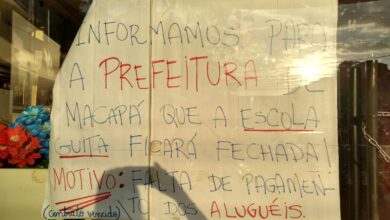 INFORMAMOS PARA
A PREFEITURA DE
MACAPÁ QUE A ESCOLA
GUITA FICARÁ FECHADA!
MOTIVO: FALTA DE PAGAMEN-
TO DOS ALUGUÉIS.
(Contrato vencido)